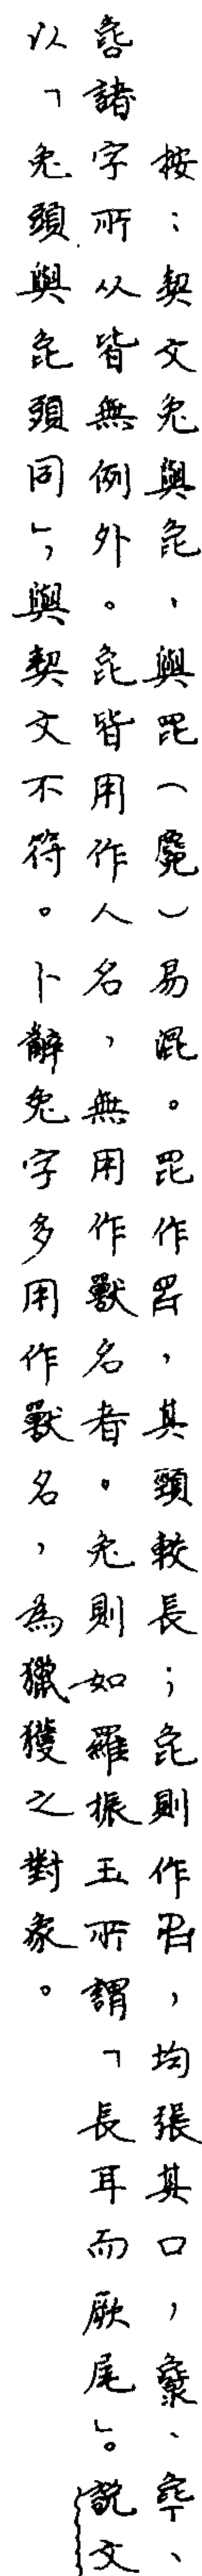 按：契文兔與㲋、與（麑）易混。作，其頸較長；㲋則作，均張其口，、、
諸字所从皆無例外。㲋皆用作人名，無用作獸名者。兔則如羅振玉所謂「長耳而厥尾」。說文
以「兔頭與㲋頭同」，與契文不符。卜辭兔字多用作獸名，為獵獲之對象。